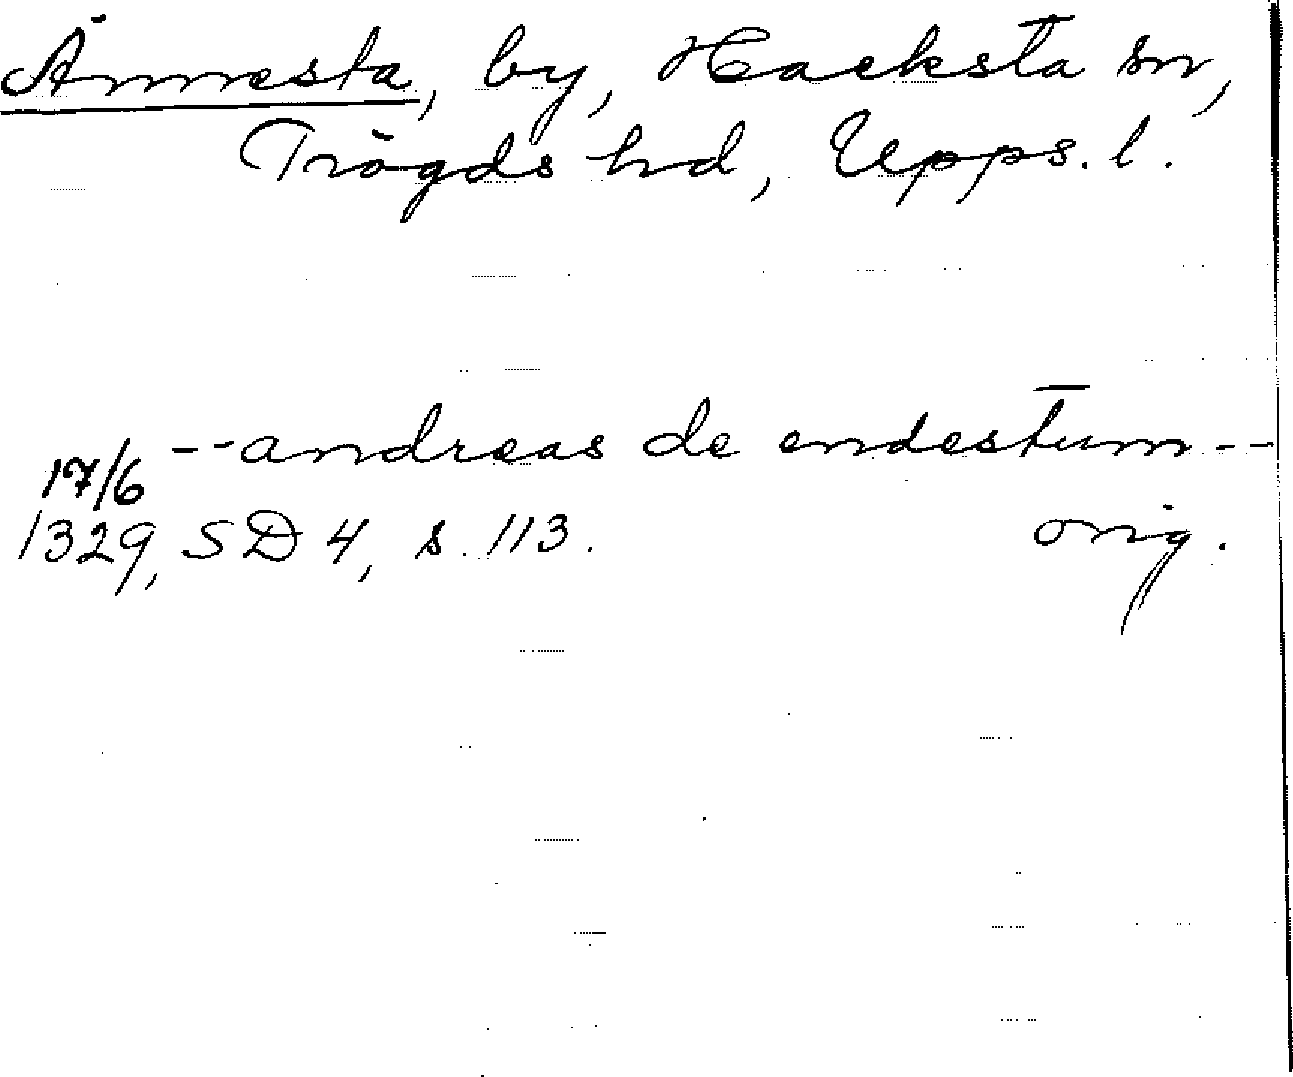 Ännesta, by, Hacksta sn,
Trögds hd, Upps. l.
-- andreas de endestum --
17/6
1329, SD 4, s. 113. orig.